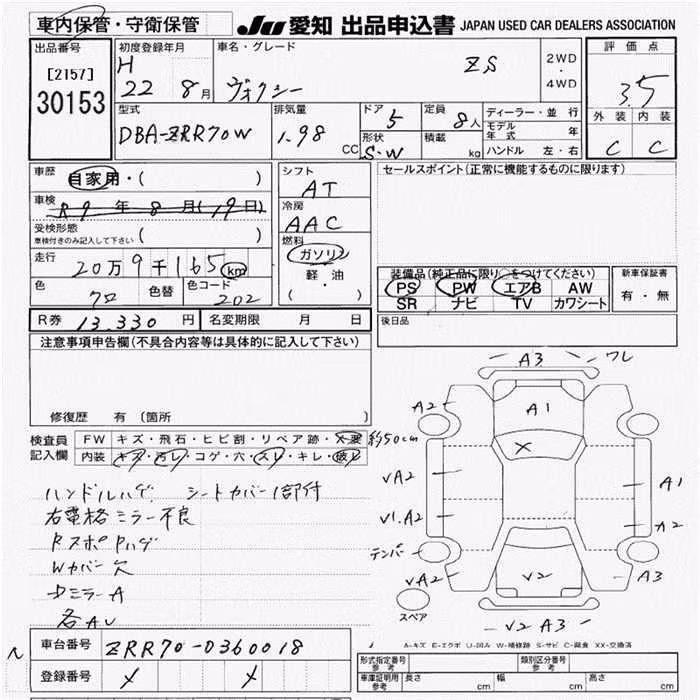 車内保管・守衛保管 JU 愛知 出品申込書 JAPAN USED CAR DEALERS ASSOCIATION
出品番号 初度登録年月 車名・グレード 評価点
[2157] H 22 8月 ヴォクシー ZS 2WD・4WD 3.5
30153
型式 排気量 ドア 定員 ディーラー・並行 外装 内装
DBA-ZRR70W 1.98 CC 5 8人 モデル年式 年
形状 積載 ハンドル 左・右 C C
S.W kg
車歴 自家用・( )
シフト AT
セールスポイント(正常に機能するものに限ります)
車検 R9年8月(19日)
冷房 AAC
受検形態 車検付きのみ記入して下さい ( )
燃料 ガソリン 軽油 ( ・ )
走行 20万9千165km
装備品(純正品に限り○をつけてください) 新車保証書
PS PW エアB AW 有・無
SR ナビ TV カワシート
色 クロ 色替 色コード 202
後日品
R券 13.330円 名変期限 月 日
注意事項申告欄(不具合内容等は具体的に記入して下さい)
修復歴 有 〔箇所
検査員記入欄 FW キズ・飛石・ヒビ割・リペア跡・X要 約50cm
内装 キズ・汚レ・コゲ・穴・スレ・キレ・破レ
ハンドルハゲ シートカバー1部付
右電格ミラー不良
RスポPハゲ
Wカバー欠
DミラーA
各AU
A3 ワレ
A2 A1
X
VA2 A1
V1.A2 A2
テンパー
VA2 V2 A3
スペア
V2 A3
A-キズ E-エクボ U-凹み W-補修跡 S-サビ C-腐食 XX-交換済
車台番号 ZRR70-0360018
登録番号 × ×
形式指定番号 参考 類別区分番号 参考
車庫証明用 参考 長さ cm 幅 cm 高さ cm